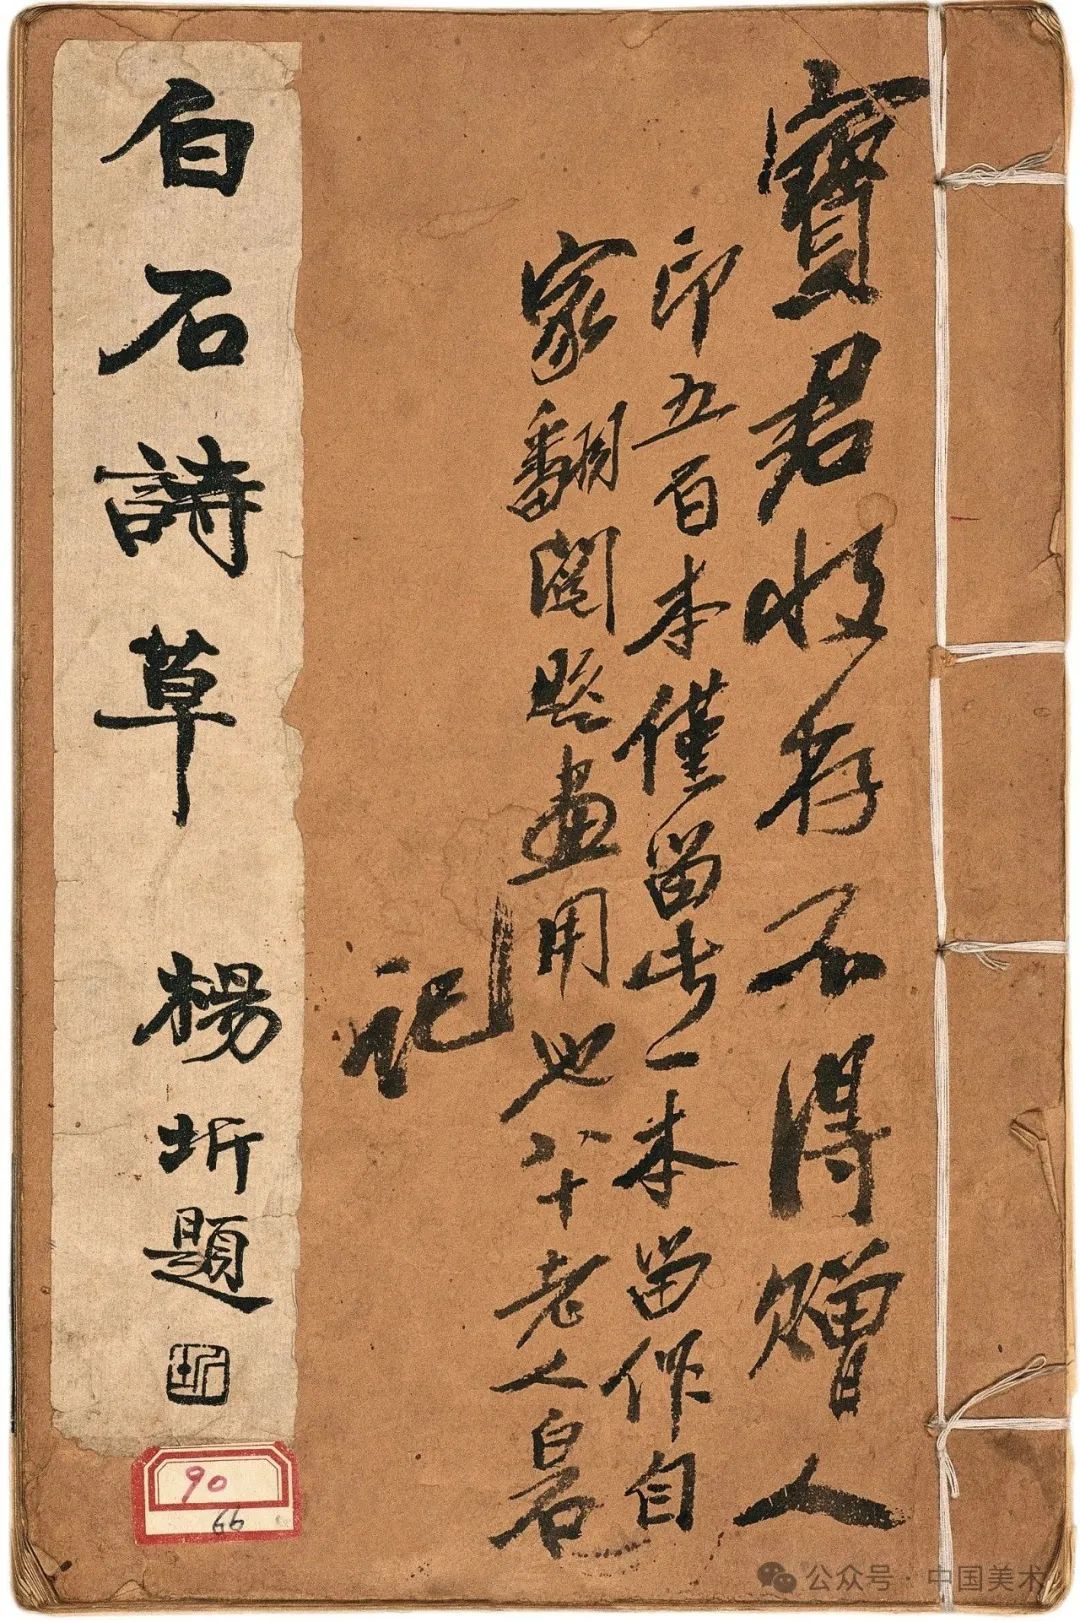 寶君收存不得贈人
印五百本僅留此一本留作自
家翻閱照畫用也八十老人白石
記
白石詩草 楊圻題
圻
90
66
公众号 · 中国美术